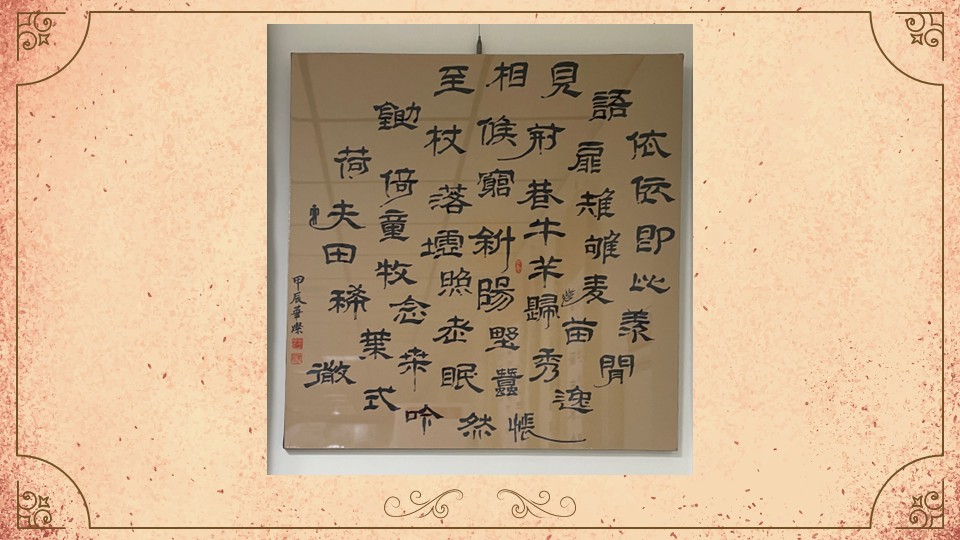 斜陽照墟落
窮巷牛羊歸
野老念牧童
倚杖候荊扉
雉雊麦苗秀
蠶眠桒葉稀
田夫荷鋤至
相見語依依
即此羨閒逸
悵然吟式微
甲辰華燦